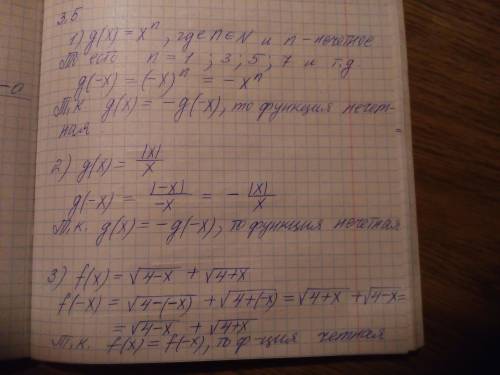 3.5
1) g(x) = xⁿ, где n ∈ N и n - нечетное
То есть n = 1; 3; 5; 7 и т.д
g(-x) = (-x)ⁿ = -xⁿ
Т.к. g(x) = -g(-x), то функция нечет-
ная
-a
2) g(x) = |x|/x
g(-x) = |-x|/-x = - |x|/x
Т.к. g(x) = -g(-x), то функция нечетная
3) f(x) = √4-x + √4+x
f(-x) = √4-(-x) + √4+(-x) = √4+x + √4-x =
= √4-x + √4+x
Т.к. f(x) = f(-x), то ф-ция четная